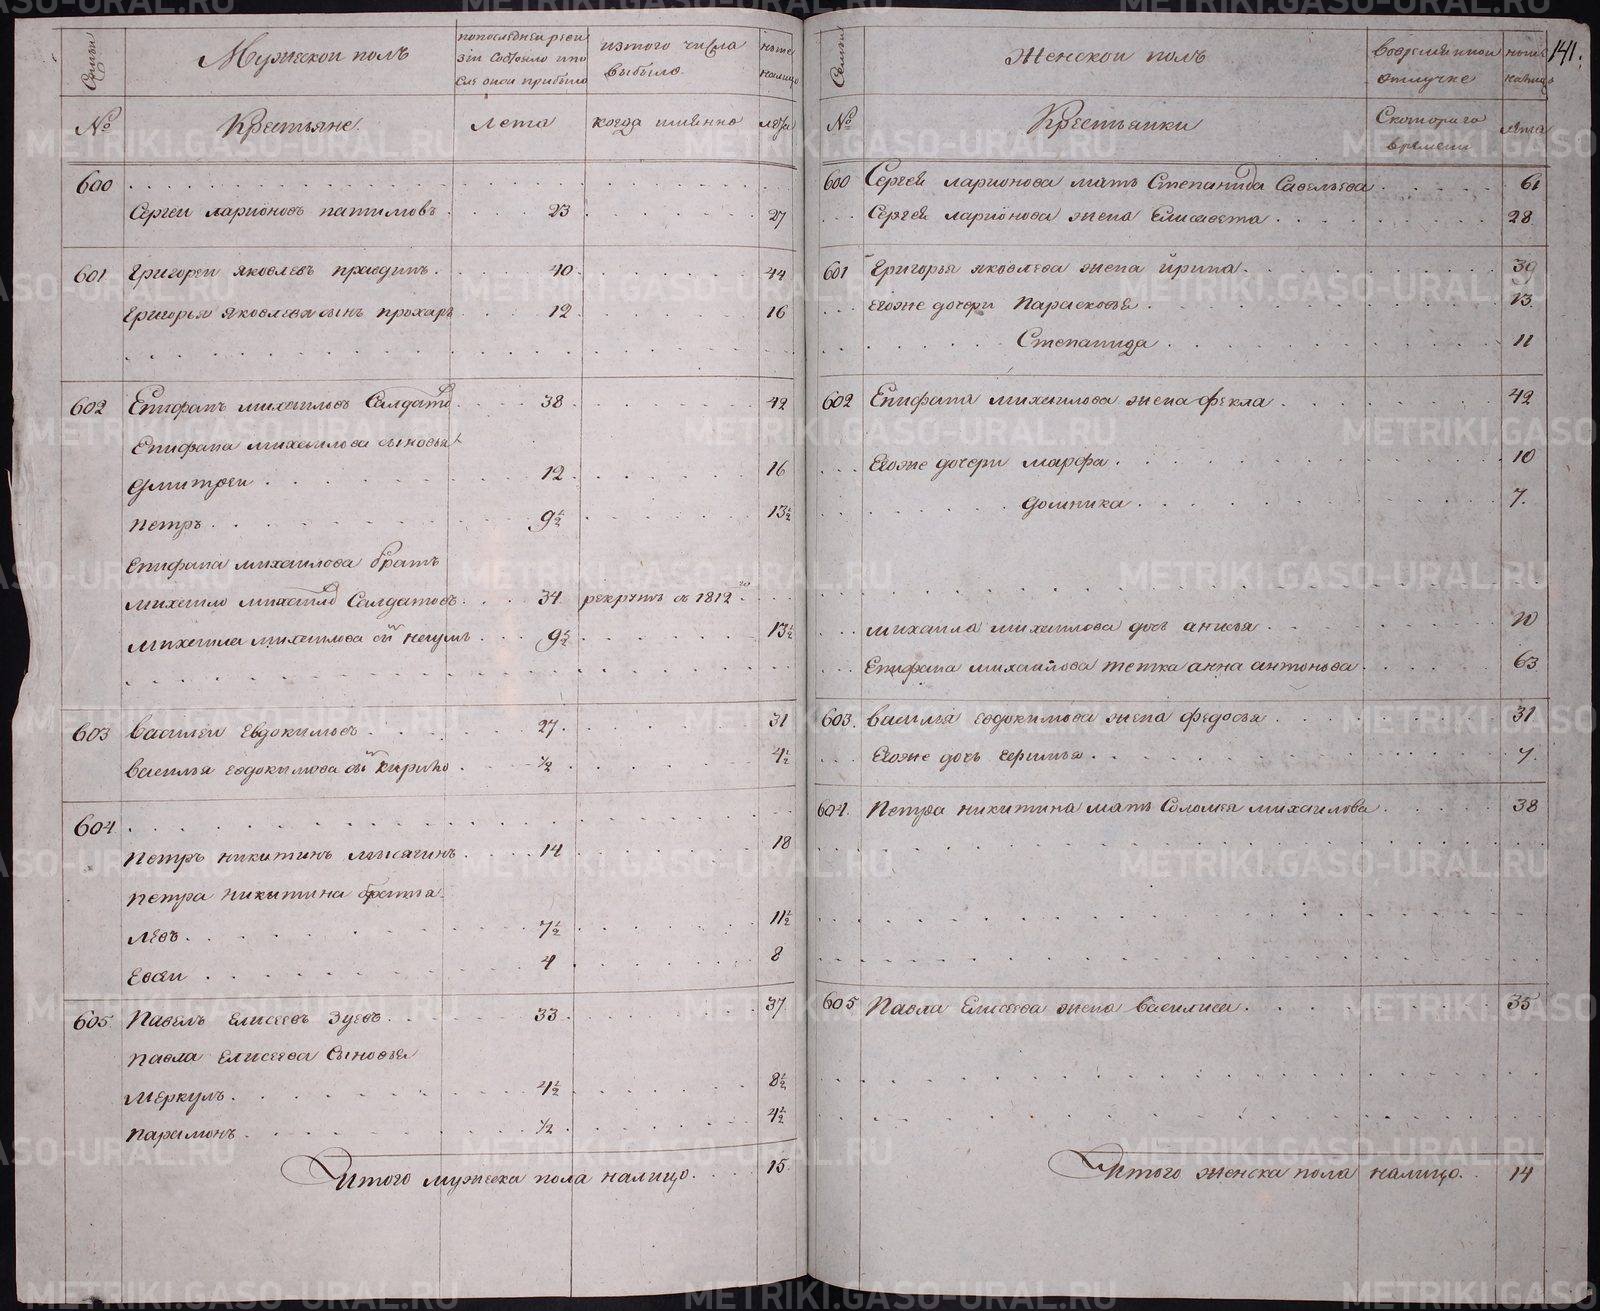 Семьи
Мужескои полъ
попоследнеи реви
зіи состояло ипо
сле онои прибыло
изтого числа
выбыло
ныне
налицо
№
Крестьяне
Лета
когда имянно
лета
600
Сергеи ларионовъ патимовъ 23 27
601 Григореи яковлевъ правдинъ 40 44
Григорья яковлева сынъ прохаръ 12 16
602 Епифанъ михаиловъ Салдатов 38 42
Епифана михаилова сыновья
дмитреи 12 16
петръ 9½ 13½
Епифана михаилова братъ
михаило михаилов Салдатовъ 34 рекрутъ в 1812 го
михаила михаилова сын наумъ 9½ 13½
603 василеи евдокимовъ 27 31
василья евдокимова сын кирило ½ 4½
604
петръ никитинъ мисягинъ 14 18
петра никитина братья
левъ 7½ 11½
евсеи 4 8
605 павелъ елисеевъ зуевъ 33 37
павла елисеева сыновья
меркулъ 4½ 8½
парамонъ ½ 4½
Итого мужеска пола налицо 15
141
Семьи
Женскои полъ
вовременнои
отлучке
ныне
налицо
№
Крестьянки
Скотораго
времени
лета
600 Сергея ларионова мать Степанида Савельева 61
Сергея ларионова жена Елисавета 28
601 Григорья яковлева жена ирина 39
егоже дочери парасковья 13
Степанида 11
602 Епифана михаилова жена фекла 42
Егоже дочери марфа 10
домника 7
михаила михаилова дочь анисья 10
Епифана михаилова тетка анна антонова 63
603 василья евдокимова жена федосья 31
Егоже дочь 7
604 Петра никитина мать Соломея михаилова 38
605 Павла Елисеева жена василиса 35
Итого женска пола налицо 14
METRIKI.GASO-URAL.RU